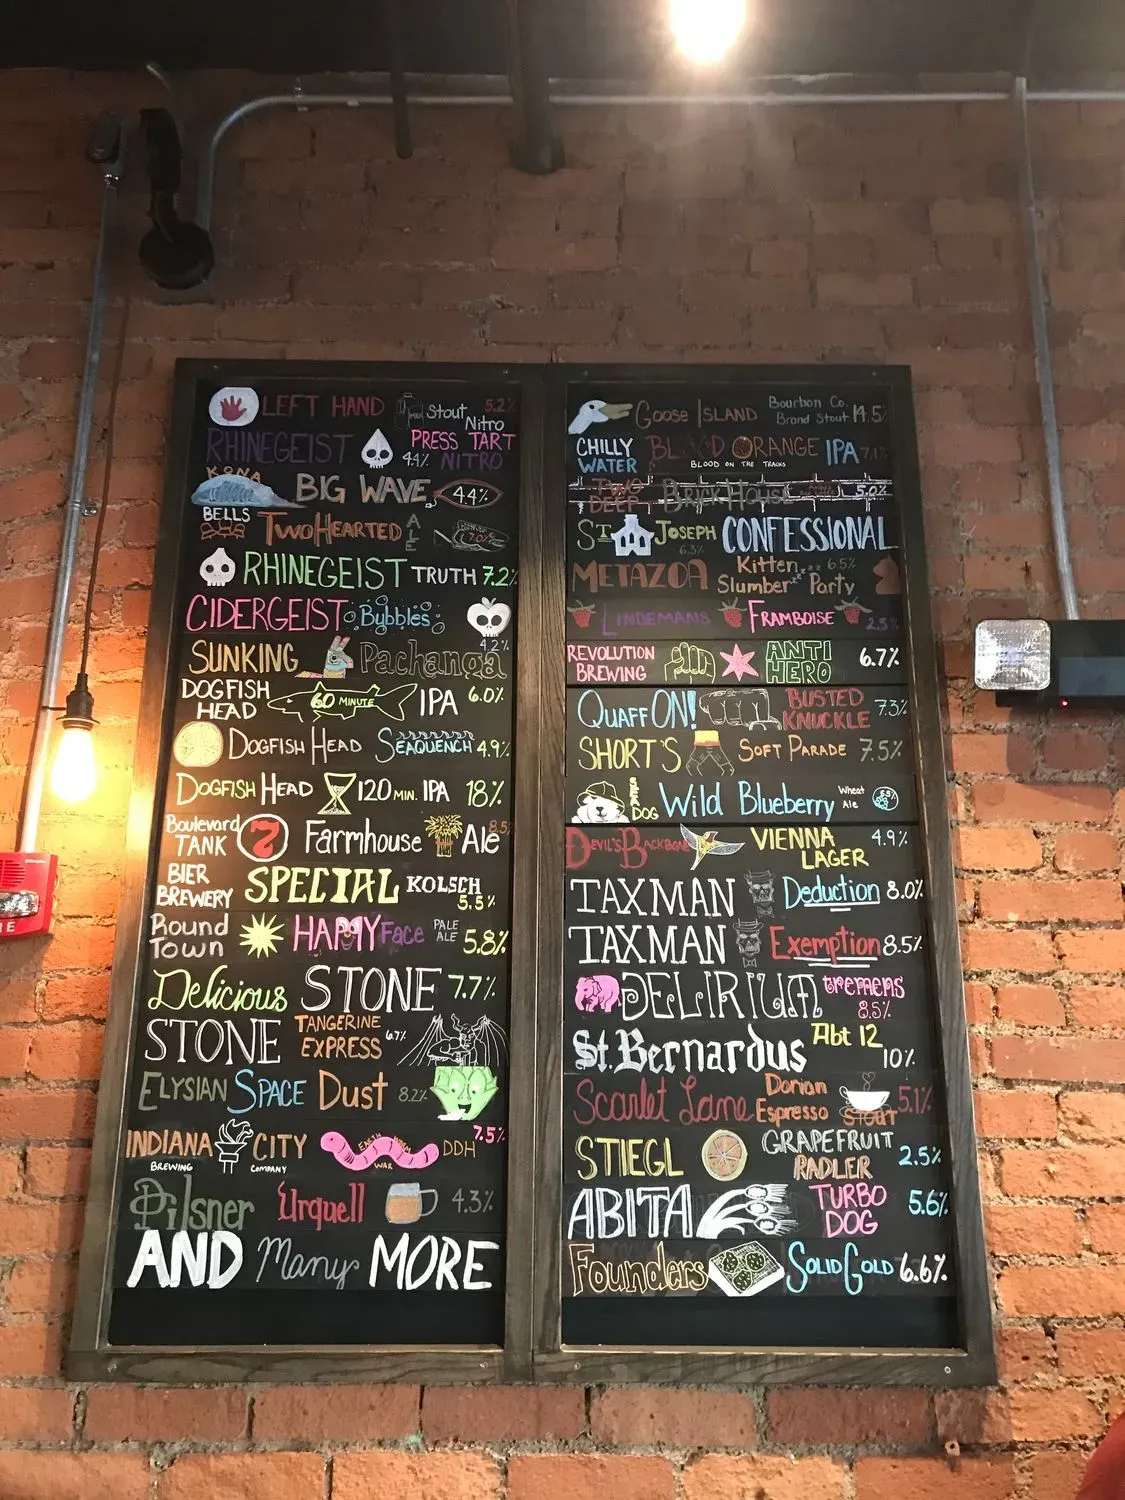 LEFT HAND Stout Nitro 5.2%
RHINEGEIST 4.4% PRESS TART NITRO
KONA BIG WAVE 4.4%
BELLS TWO HEARTED ALE 7.0%
RHINEGEIST TRUTH 7.2%
CIDERGEIST Bubbles
SUNKING Pachanga 4.2%
DOGFISH HEAD 60 MINUTE IPA 6.0%
DOGFISH HEAD SEAQUENCH 4.9%
DOGFISH HEAD 120 MIN. IPA 18%
Boulevard TANK 7 Farmhouse Ale 8.5
BIER BREWERY SPECIAL KOLSCH 5.5%
Round Town HAPPY Face PALE ALE 5.8%
Delicious STONE 7.7%
STONE TANGERINE EXPRESS 6.7%
ELYSIAN SPACE DUST 8.2%
INDIANA CITY BREWING COMPANY WAR DDH 7.5%
Pilsner Urquell 4.3%
AND Many MORE
GOOSE ISLAND Bourbon Co. Brand Stout 14.5%
CHILLY WATER BLOOD ORANGE IPA 7.1%
BLOOD ON THE TRACKS
TWO DEEP BRICK HOUSE 5.0%
ST JOSEPH 6.3% CONFESSIONAL
METAZOA Kitten Slumber Party 6.5%
LINDEMANS FRAMBOISE 2.5%
REVOLUTION BREWING ANTI HERO 6.7%
QUAFF ON! BUSTED KNUCKLE 7.3%
SHORT'S SOFT PARADE 7.5%
SEA DOG Wild Blueberry Wheat Ale
DEVIL'S BACKBONE VIENNA LAGER 4.9%
TAXMAN Deduction 8.0%
TAXMAN Exemption 8.5%
DELIRIUM tremens 8.5%
St. Bernardus Abt 12 10%
Scarlet Lane Dorian Espresso STOUT 5.1%
STIEGL GRAPEFRUIT RADLER 2.5%
ABITA TURBO DOG 5.6%
Founders SOLID GOLD 6.6%